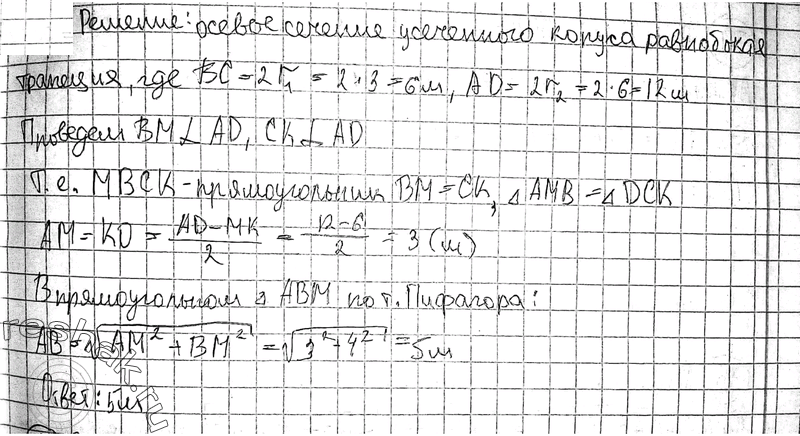 Решение: осевое сечение усеченного конуса равнобокая
трапеция, где BC = 2r₁ = 2·3 = 6м, AD = 2r₂ = 2·6 = 12м
Проведем BM⊥AD, CK⊥AD
Т.е. MBCK - прямоугольник BM = CK, △AMB = △DCK
AM = KD = (AD - MK)/2 = (12 - 6)/2 = 3 (м)
В прямоугольном △ ABM по т. Пифагора:
AB = √(AM² + BM²) = √(3² + 4²) = 5м
Ответ: 5м
reshak.ru